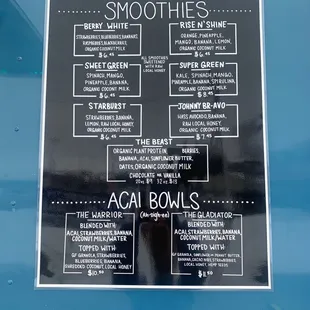 SMOOTHIES
BERRY WHITE
STRAWBERRIES, BLUEBERRIES, BANANAS
RASPBERRIES, BLACKBERRIES,
ORGANIC COCONUT MILK
$6.45
RISE N' SHINE
ORANGE, PINEAPPLE,
MANGO, BANANA, LEMON,
ORGANIC COCONUT MILK
$6.45
ALL SMOOTHIES
SWEETENED WITH
RAW LOCAL
HONEY
SWEET GREEN
SPINACH, MANGO,
PINEAPPLE, BANANA,
ORGANIC COCONUT MILK
$6.45
SUPER GREEN
KALE, SPINACH, MANGO,
PINEAPPLE, BANANA, SPIRULINA,
ORGANIC COCONUT MILK
$8.45
STARBURST
STRAWBERRIES, BANANA,
LEMON, RAW LOCAL HONEY,
ORGANIC COCONUT MILK
$6.45
JOHNNY BR-AVO
HASS AVOCADO, BANANA,
RAW LOCAL HONEY,
ORGANIC COCONUT MILK
$7.45
THE BEAST
ORGANIC PLANT PROTEIN BERRIES,
BANANA, ACAI, SUNFLOWER BUTTER,
DATES, ORGANIC COCONUT MILK
CHOCOLATE OR VANILLA
20oz $9 32oz $13
ACAI BOWLS
(Ah-sigh-ee)
THE WARRIOR
BLENDED WITH
ACAI, STRAWBERRIES, BANANA,
COCONUT MILK/WATER
TOPPED WITH
GF GRANOLA, STRAWBERRIES,
BLUEBERRIES, BANANA,
SHREDDED COCONUT, LOCAL HONEY
$10.50
THE GLADIATOR
BLENDED WITH
ACAI, STRAWBERRIES, BANANA,
COCONUT MILK/WATER
TOPPED WITH
GF GRANOLA, SUNFLOWER OR PEANUT BUTTER,
BANANA, CACAO NIBS, STRAWBERRIES,
LOCAL HONEY, HEMP SEEDS
$11.50